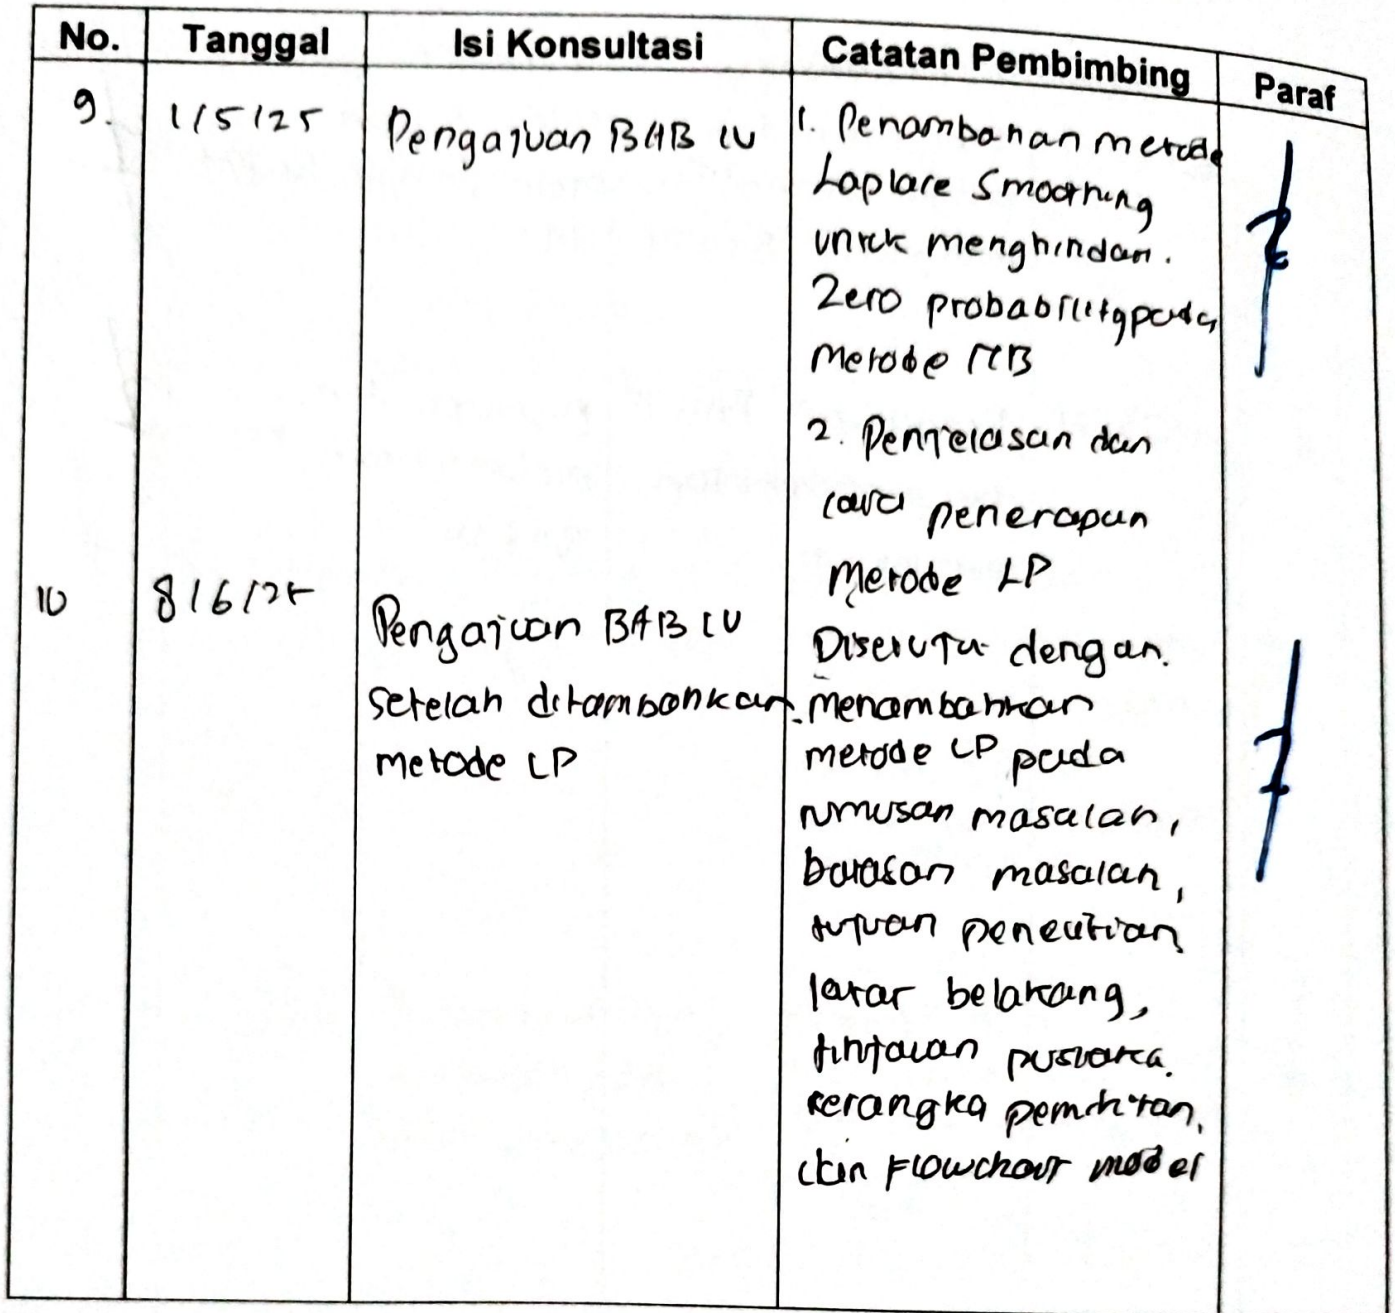 No. Tanggal Isi Konsultasi Catatan Pembimbing Paraf
9. 1/5/25 Pengajuan BAB IV 1. Penambahan metode
Laplace Smoothing
untuk menghindari.
Zero probability pada
Metode NB
2. Penjelasan dan
cara penerapan
Metode LP
10 8/6/25 Pengajuan BAB IV
setelah ditambahkan
metode LP
Disetujui dengan.
menambahkan
metode LP pada
rumusan masalah,
batasan masalah,
tujuan penelitian
latar belakang,
tinjauan pustaka.
kerangka pemikiran,
dan Flowchart model